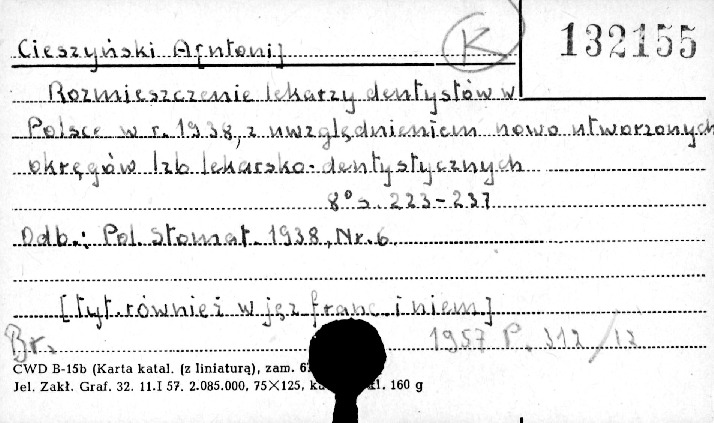 132155
Cieszyński A[ntoni]
K
Rozmieszczenie lekarzy dentystów w
Polsce w r. 1938, z uwzględnieniem nowo utworzonych
okręgów Izb lekarsko-dentystycznych
8° s. 223-237
Odb.: Pol. Stomat. 1938, Nr. 6
[tyt. również w jęz franc. i niem]
Br. 1957 P. 312/13
CWD B-15b (Karta katal. (z liniaturą), zam.
Jel. Zakł. Graf. 32. 11.I 57. 2.085.000, 75×125, kl. 160 g